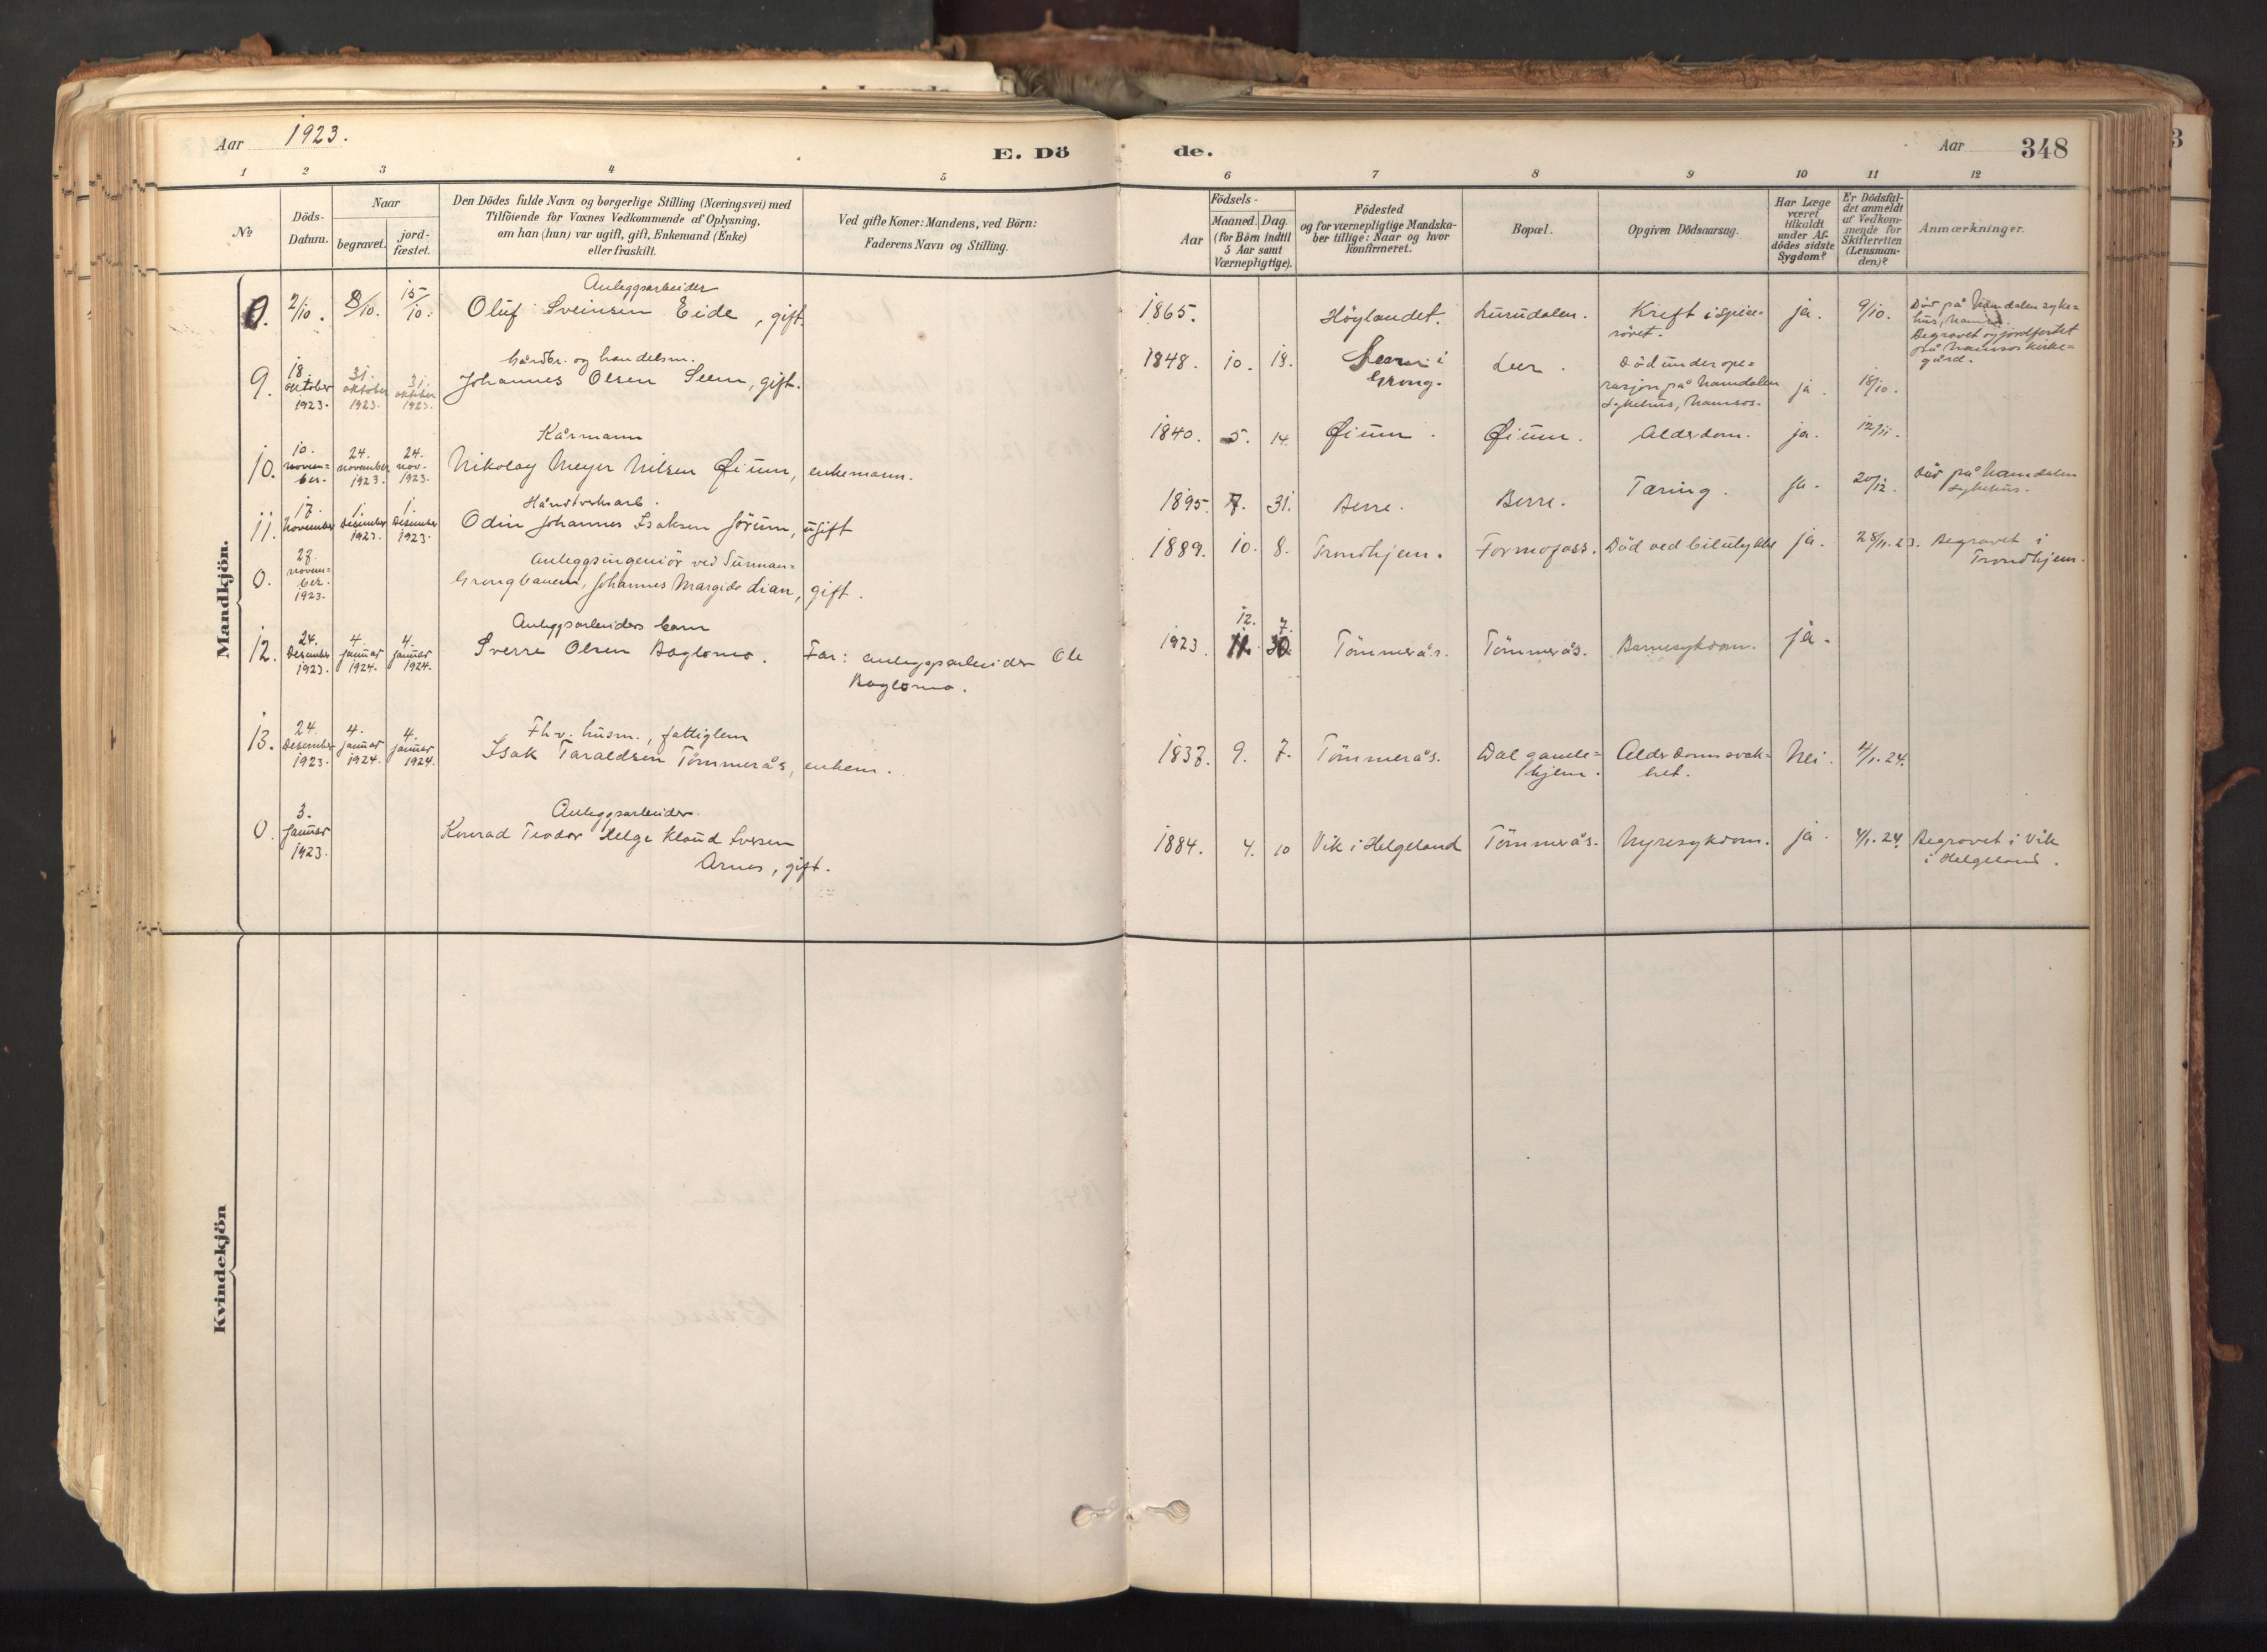 Aar 1923.
E. Dö
de.
Aar
348
1 2 3 4 5
6 7 8 9 10 11 12
No
Döds-
Datum.
Naar
begravet.
jord-
fæstet.
Den Dödes fulde Navn og borgerlige Stilling (Næringsvei) med
Tilföiende for Voxnes Vedkommende af Oplysning,
om han (hun) var ugift, gift, Enkemand (Enke)
eller fraskilt.
Ved gifte Koner: Mandens, ved Börn:
Faderens Navn og Stilling.
Födsels-
Aar
Maaned. Dag.
(for Börn indtil
5 Aar samt
Værnepligtige).
Födested
og for værnepligtige Mandska-
ber tillige: Naar og hvor
konfirmeret.
Bopæl.
Opgiven Dödsaarsag.
Har Læge
været
tilkaldt
under Af-
dödes sidste
Sygdom?
Er Dödsfal-
det anmeldt
af Vedkom-
mende for
Skifteretten
(Lensman-
den)?
Anmærkninger.
Mandkjön.
0. 2/10. 8/10. 15/10.
Anleggsarbeider
Oluf Sveinsen Eide, gift.
1865. Höylandet. Lurudalen.
Kreft i spise-
röret.
ja. 9/10.
Död på Namdalen syke-
hus, Namsos.
Begravet og jordfestet
på Namsos kirke-
gård.
9.
18.
oktober
1923.
31.
oktober
1923.
31.
oktober
1923.
Gårdbr. og handelsm.
Johannes Olsen Seem, gift.
1848. 10. 19.
Seem i
Grong.
Död under ope-
rasjon på Namdalen
Sykehus, Namsos.
ja. 18/10.
10.
10.
novem-
ber.
24.
november
1923.
24.
nov.
1923.
Kårmann
Nikolay Meyer Nilsen Øium, enkemann.
1840. 5. 14. Øium. Øium. Alderdom. ja. 12/11.
11.
17.
November
1.
Desember
1923.
1.
Desember
1923.
Håndverksarb.
Odin Johannes Isaksen Jörum, ugift
1895. 7. 31. Berre. Berre. Tæring. ja. 20/12.
Död på Namdalen
sykehus.
0.
27.
novem-
ber.
1923.
Anleggsingeniör ved Sunnan-
Grongbanen, Johannes Margido Lian, gift.
1889. 10. 8. Trondhjem. Formofoss. Död ved bilulykke ja. 28/11.23.
Begravet i
Trondhjem.
12.
24.
Desember
1923.
4.
januar
1924.
4.
januar
1924.
Anleggsarbeiders barn
Sverre Olsen Boglomo. Far: anleggsarbeider Ole
Boglomo.
12. 7.
1923. 11. 30. Tömmerås. Tömmerås. Barnesykdom. ja.
13.
24.
Desember
1923.
4.
januar
1924.
4.
januar
1924.
Fhv. husm., fattiglem
Isak Taraldsen Tömmerås, enkem.
1837. 9. 7. Tömmerås.
Dal gamle-
hjem.
Alderdomssvak-
het.
Nei. 4/1.24.
0.
3.
Januar
1923.
Anleggsarbeider.
Konrad Teodor Helge Klaud Iversen
Arnes, gift.
1884. 4. 10 Vik i Helgeland Tömmerås. Nyresykdom. ja. 4/1.24.
Begravet i Vik
i Helgeland.
Kvindekjön